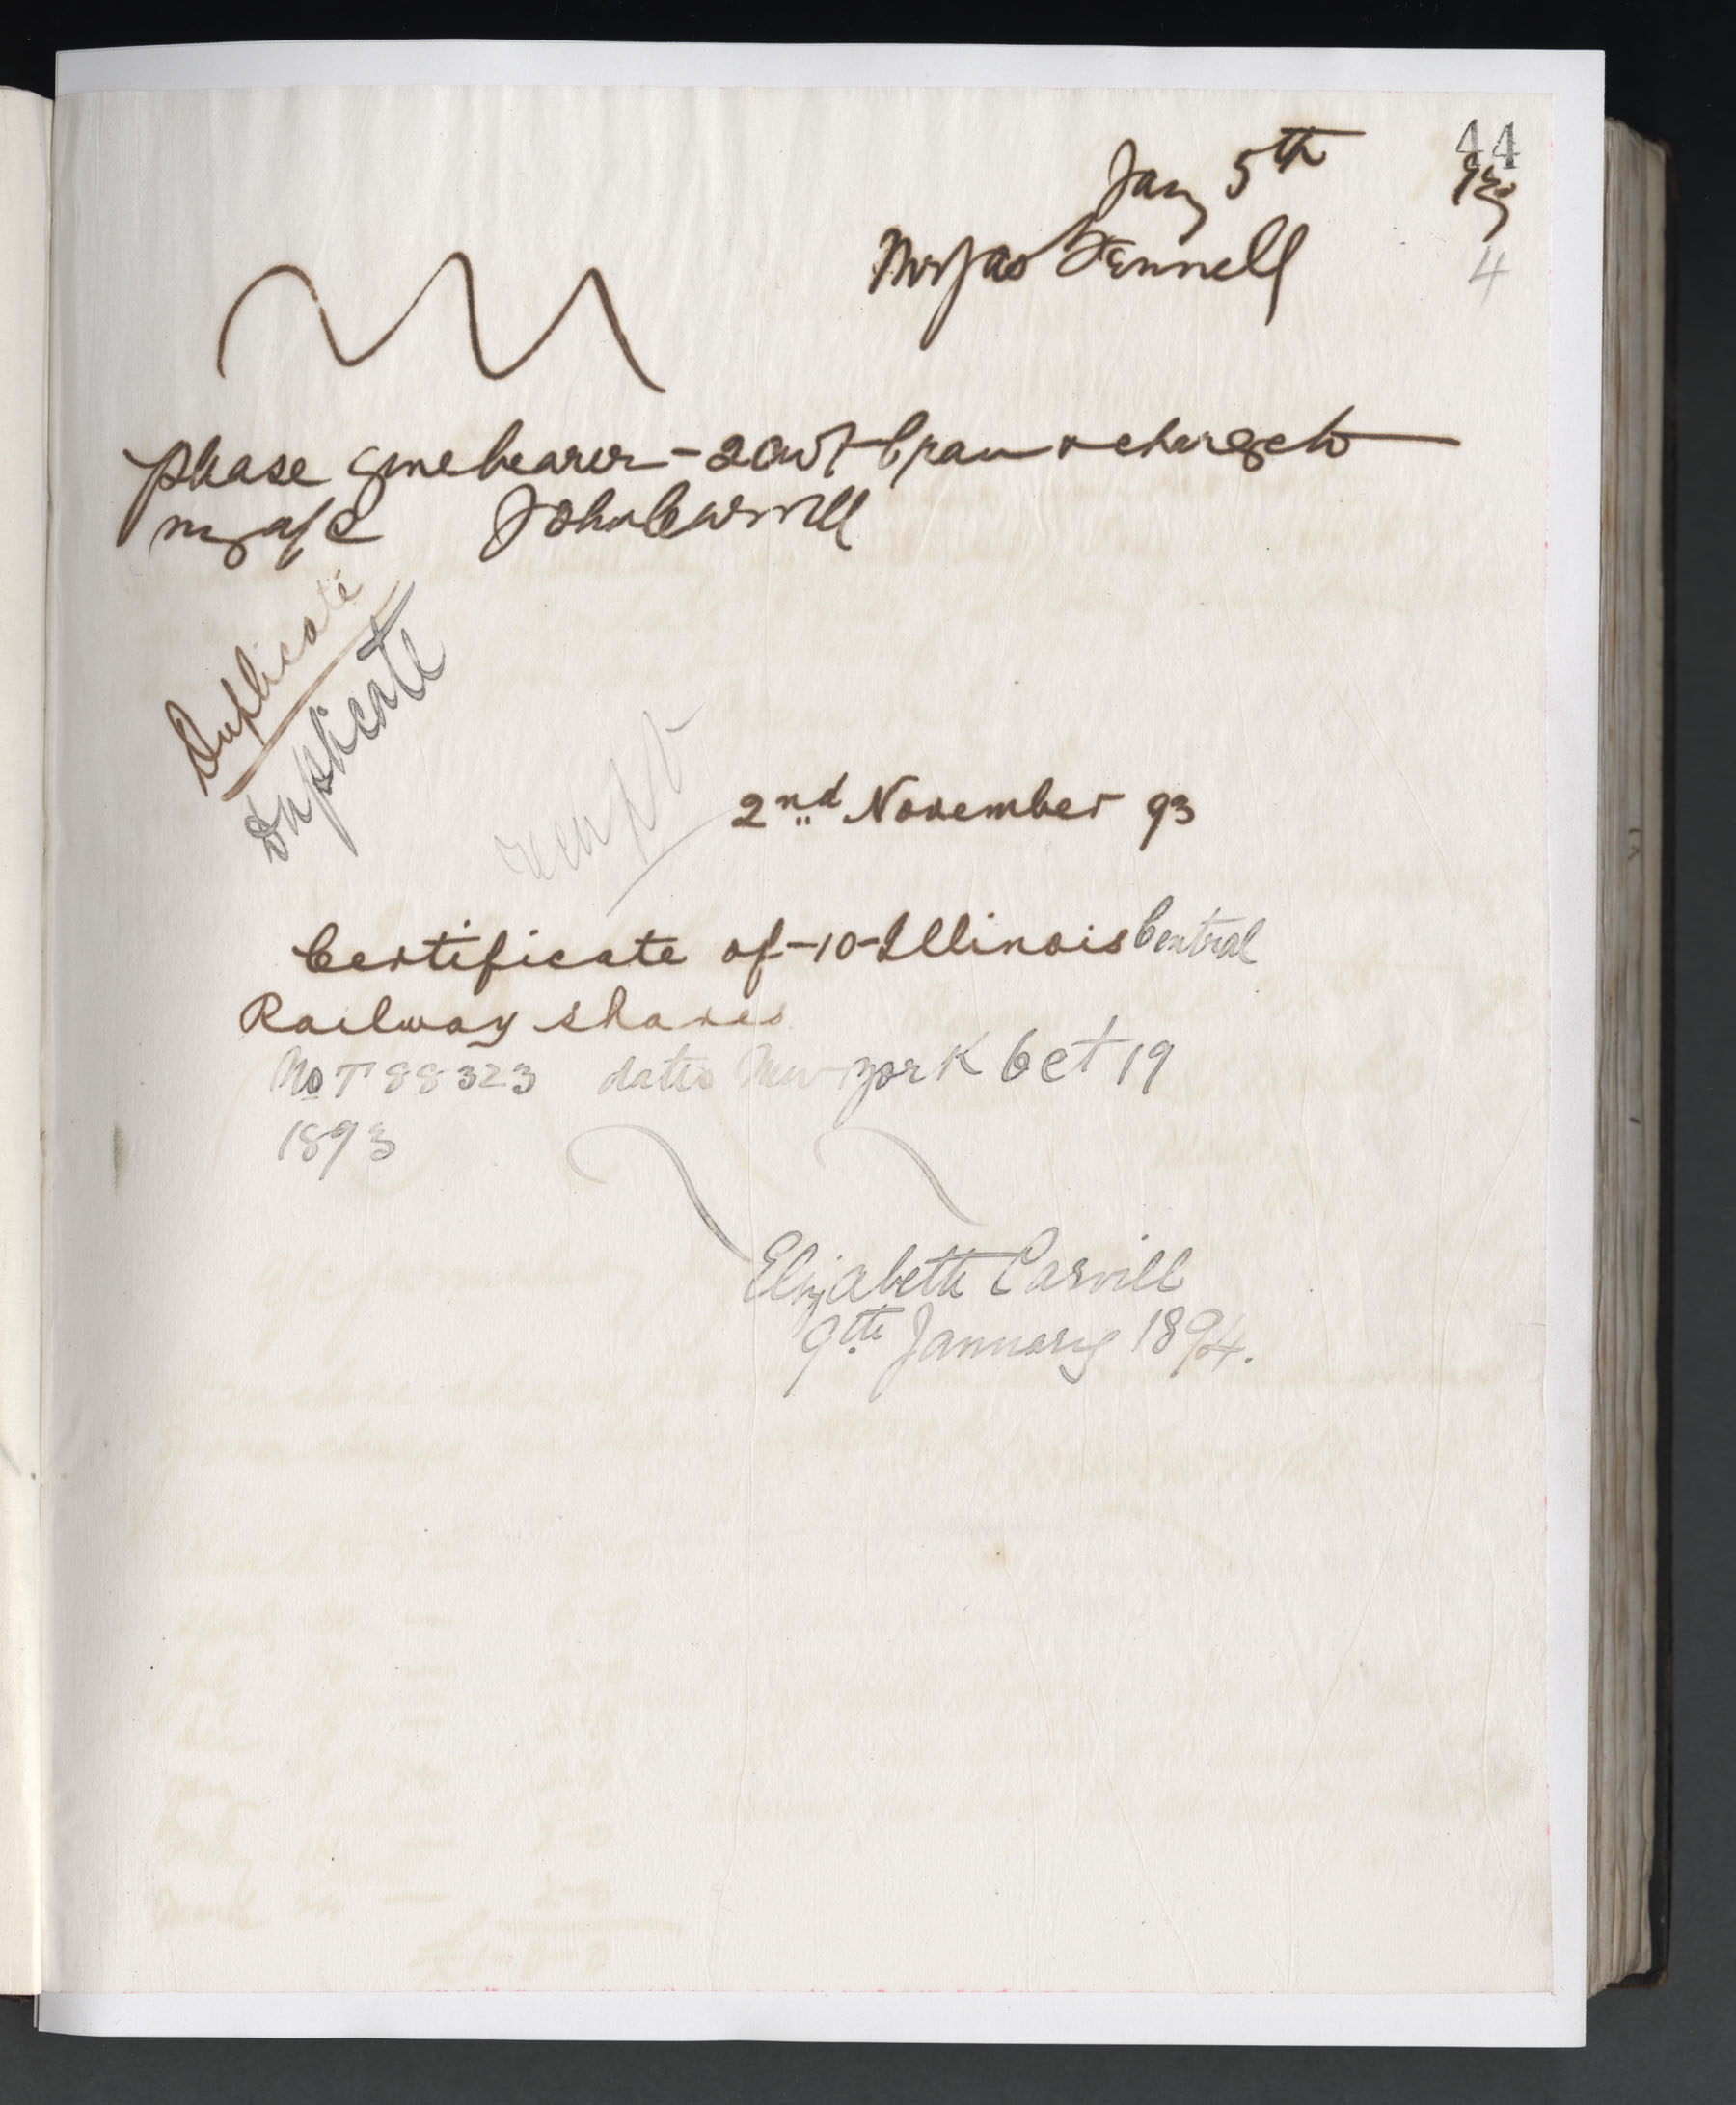 44
Jany 5th 93
4
Mr Jas Fennell
please give bearer - 2 cwt bran & charge to
my a/c John Carvill
Duplicate
Duplicate
receipt
2nd November 93
Certificate of -10- Illinois Central
Railway shares
No T 88323 dated New York Oct 19
1893
Elizabeth Carvill
9th January 1894.